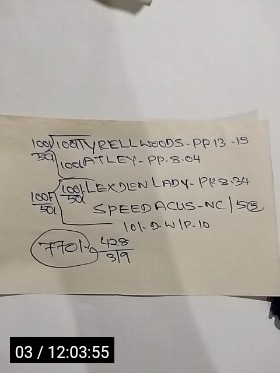 100/50 100/TYRELLWOODS-PP13-15
100/ATLEY-PP.8.04
100F/50/ 100/50/ LEXDEN LADY-PP.8.34
SPEEDACUS-NC/5@
10/-D.W/P.10
770/- 428
3/9
03 / 12:03:55